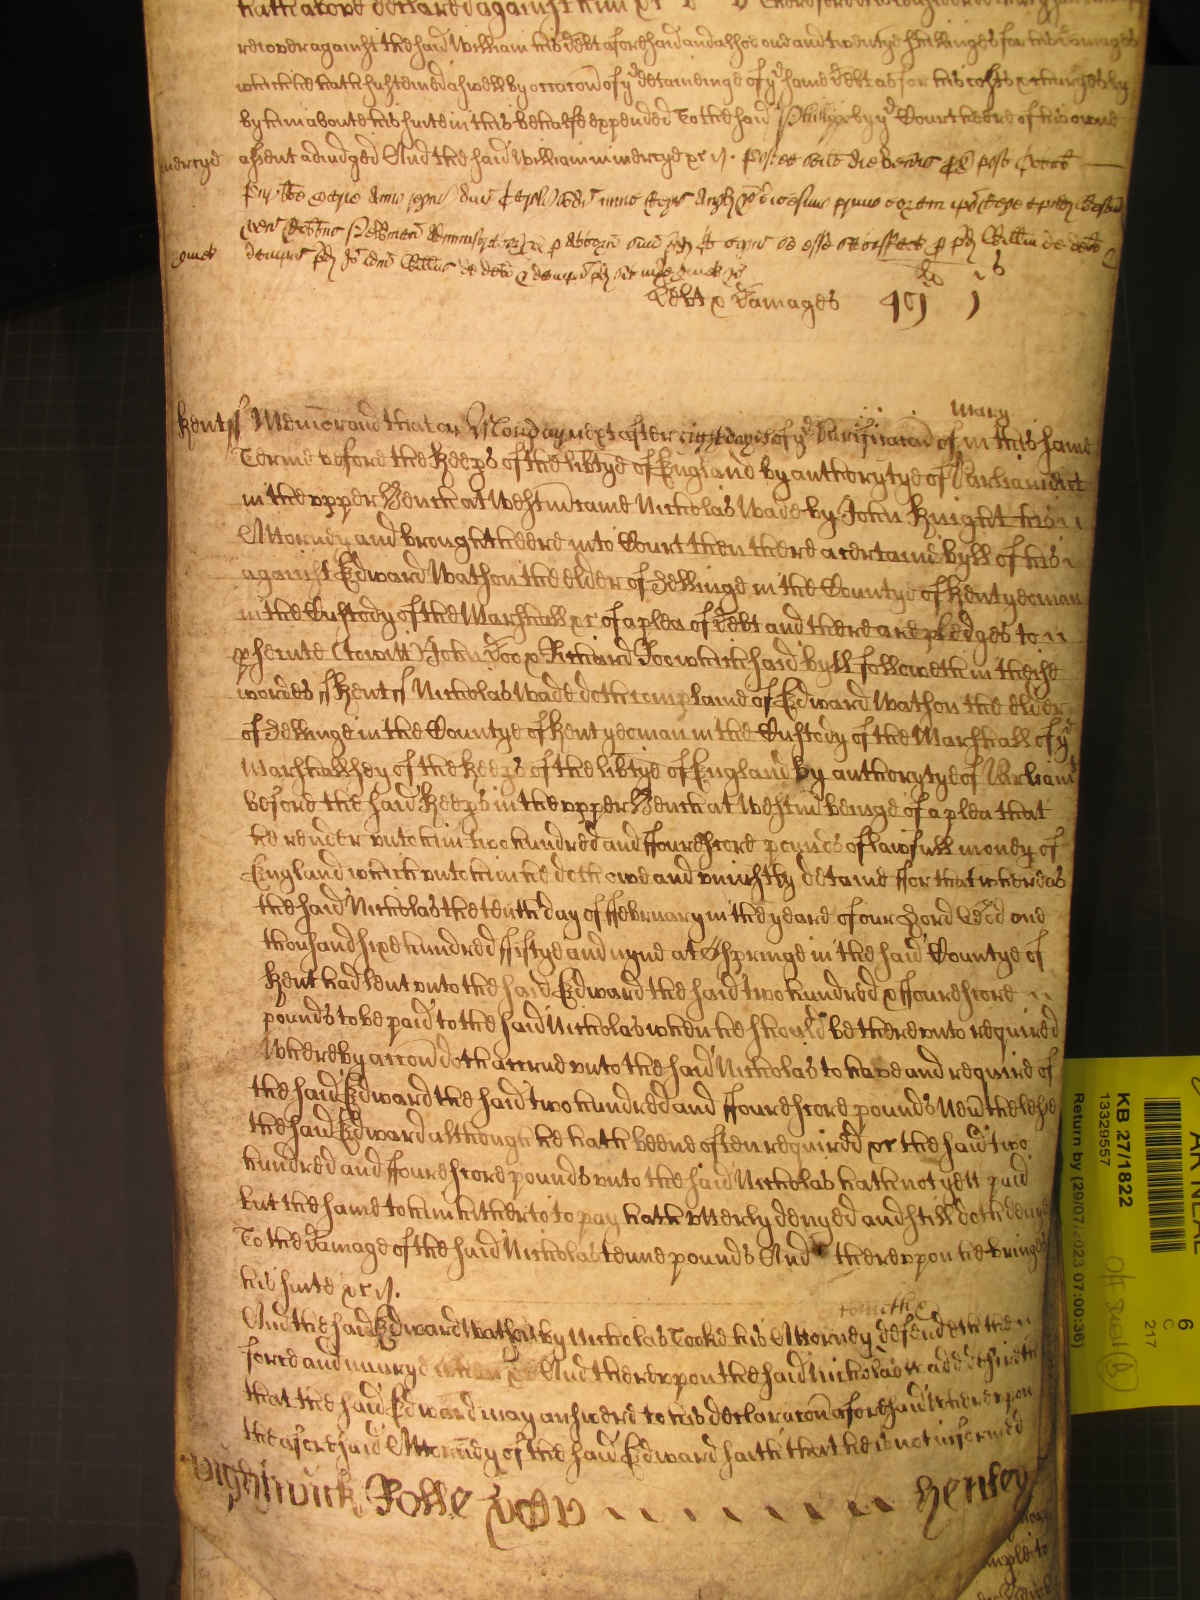 recover against the said William his debt aforesaid and alsoe one and twentye shillinges for his damages
which he hath susteined aswell by occacon of yᵉ deteininge of yᵉ same debt as for his costs & charges by
by him aboute his suite in this behalfe expended To the said Phillipp by yᵉ Court heere of his owne
mercye
assent adiudged And the said William in mercye &c //.
Debt & Damages 49ˡⁱ 1ˢ
Kent ss Memorand that on Monday next after eight dayes of yᵉ Purificacon of Mary in this same
Terme before the Keeps of the libtye of England by authorytye of Parliament
in the vpper Bench at Westm came Nicholas Wade by John Knight his
Attorney and brought heere into Court then there a certaine byll of his
against Edward Watson the elder of Sellinge in the Countye of Kent yeoman
in the Custody of the Marshall &c of a plea of debt and there are pledges to
psecute (to witt) John Doo & Richard Roo which said byll followeth in theise
wordes ss Kent ss Nicholas Wade doth complaine of Edward Watson the elder
of Sellinge in the Countye of Kent yeoman in the Custody of the Marshall of yᵉ
Marshallsey of the Keeps of the libtye of England by authorytye of Parliamᵗ
before the said Keeps in the vpper Bench at Westm beinge of a plea that
he render vnto him two hundred and ffourescore pounds of lawfull money of
England which vnto him he doth owe and vniustly detaine ffor that whereas
the said Nicholas the tenth day of ffebruary in the yeare of our Lord God one
thousand sixe hundred ffiftye and nyne at Ospringe in the said Countye of
Kent had lent vnto the said Edward the said two hundred & ffourescore
pounds to be paid to the said Nicholas when he should be therevnto required
Whereby accon doth accrue vnto the said Nicholas to have and require of
the said Edward the said two hundred and ffourescore pounds Nevthelesse
the said Edward although he hath beene often required &c the said two
hundred and ffourescore pounds vnto the said Nicholas hath not yett paid
but the same to him hitherto to pay hath vtterly denyed and still doth denye
To the damage of the said Nicholas tenne pounds And therevpon he bringes
his suite &c //.
And the said Edward Watson by Nicholas Cooke his Attorney cometh & defendeth the
force and iniurye when &c And therevpon the said Nicholas Wade desireth
that the said Edward may answere to his declaracon aforesaid Wherevpon
the aforesaid Attorney of the said Edward saith that he is not informed
Wightwick Rolle Henley
KB 27/1822
13329557
Return by (29/07/2023 07:00:36)
6
C
217